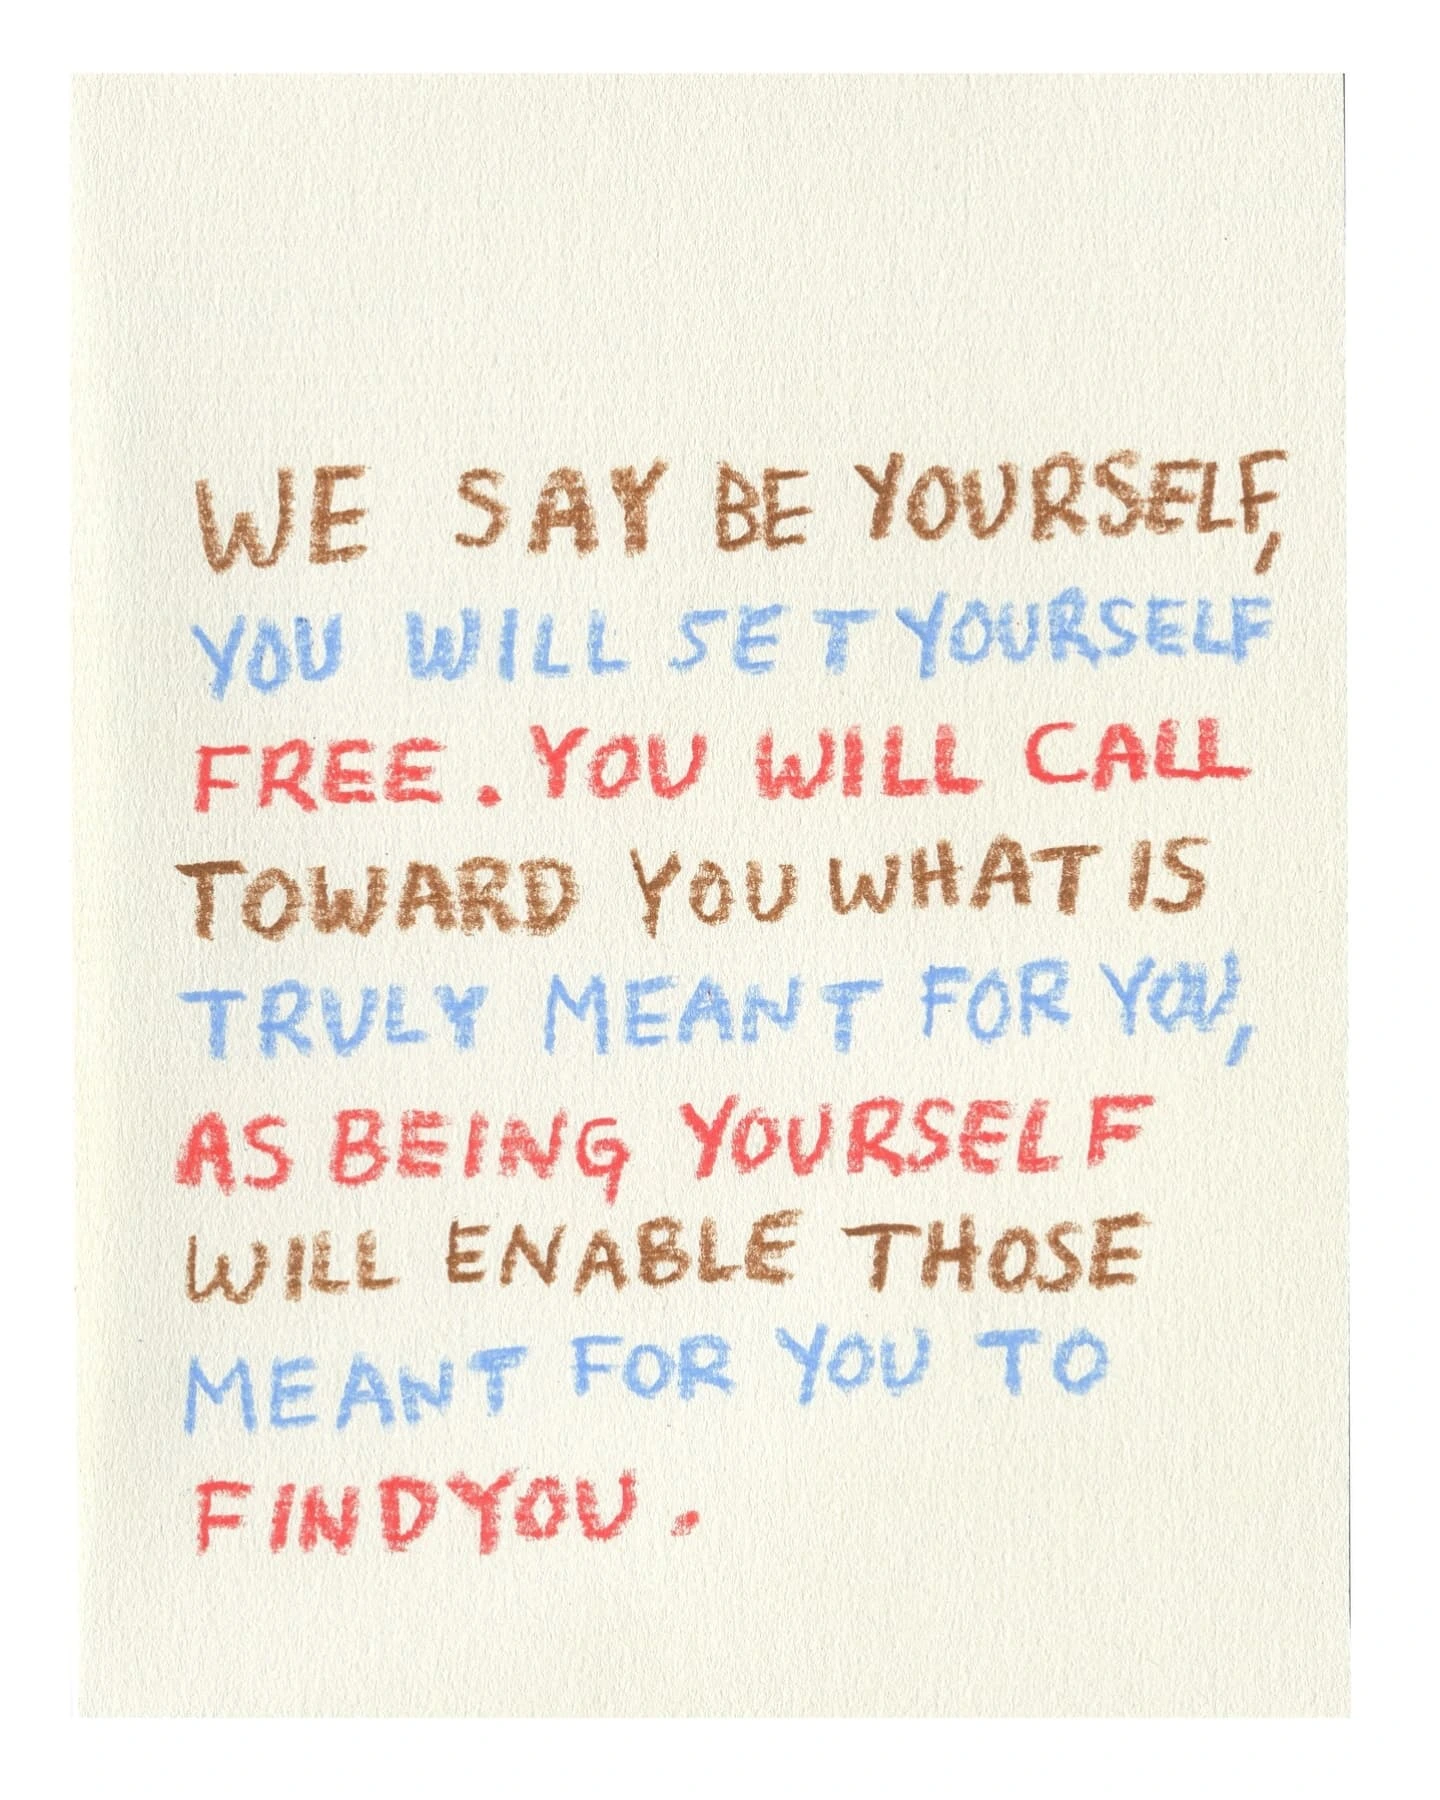 WE SAY BE YOURSELF,
YOU WILL SET YOURSELF
FREE. YOU WILL CALL
TOWARD YOU WHAT IS
TRULY MEANT FOR YOU,
AS BEING YOURSELF
WILL ENABLE THOSE
MEANT FOR YOU TO
FIND YOU.